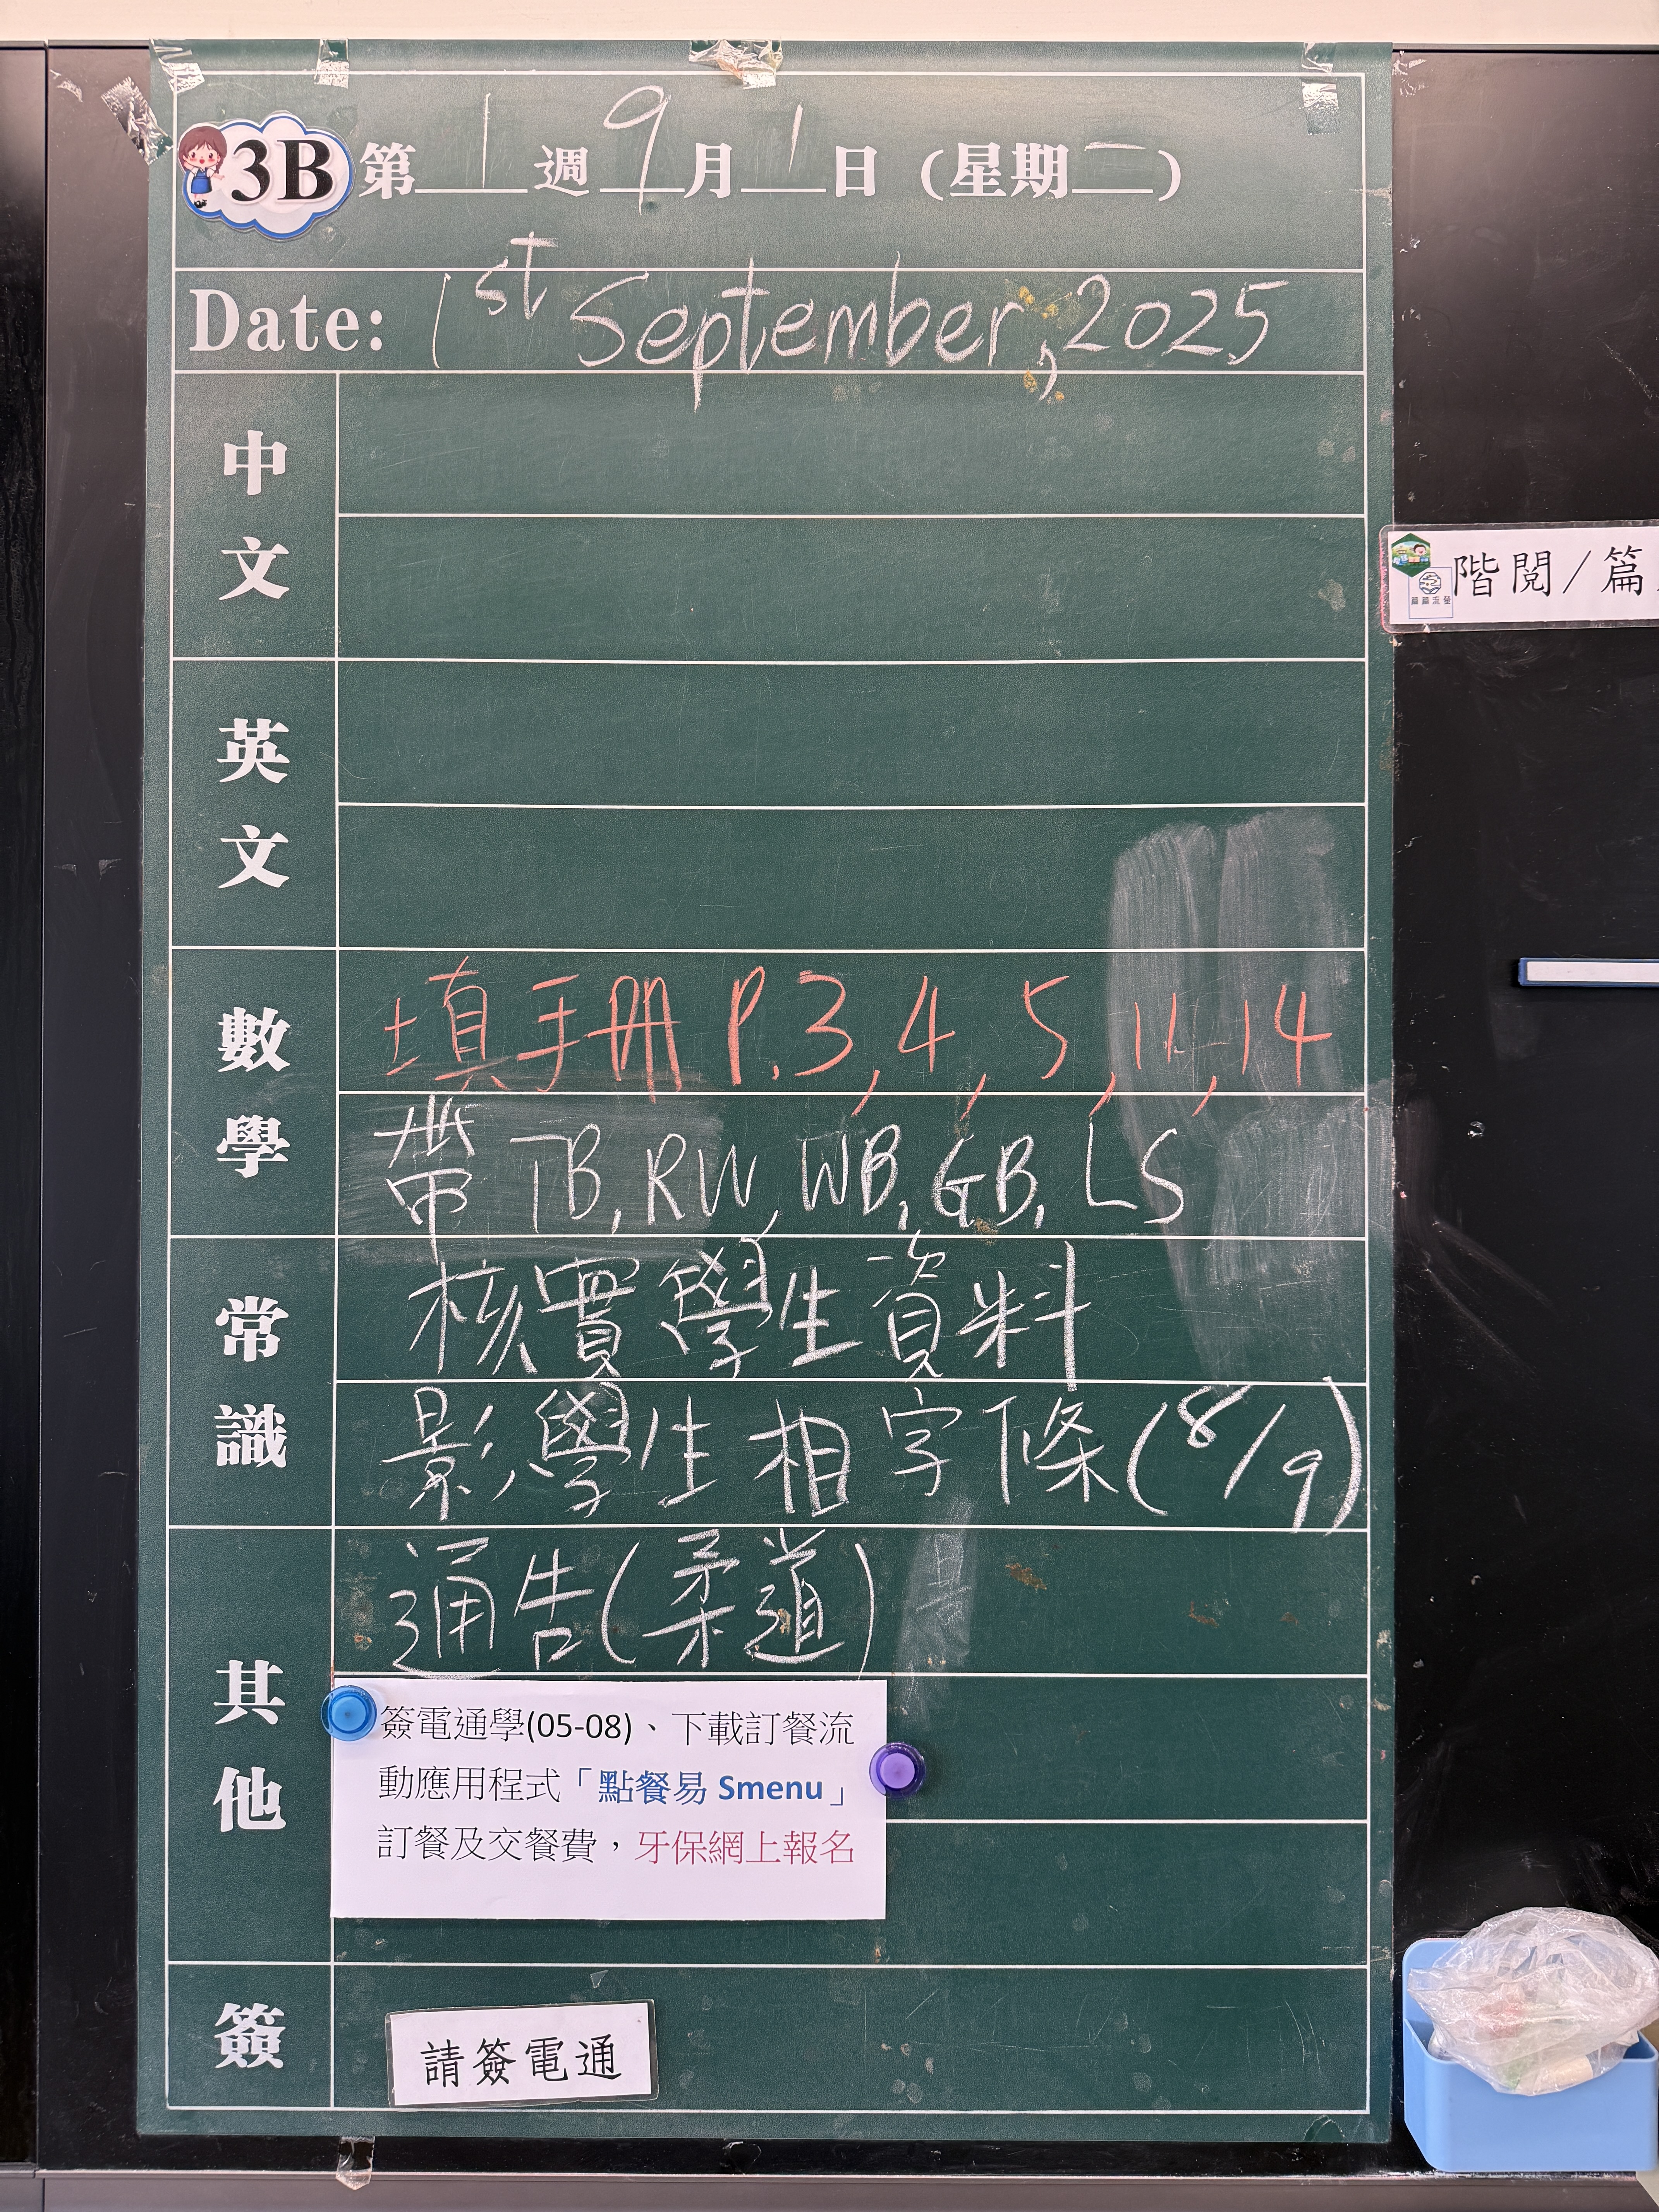 3B 第1週 9月1日 (星期一)
Date: 1st September, 2025
中文
英文
數學
填手冊 P.3, 4, 5, 11, 14
帶 TB, RW, WB, GB, LS
常識
核實學生資料
影學生相字條(8/9)
其他
通告(柔道)
簽電通學(05-08)、下載訂餐流
動應用程式「點餐易 Smenu」
訂餐及交餐費，牙保網上報名
簽
請簽電通
階閱/篇
篇篇流螢